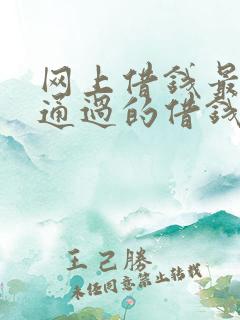 网上借钱最
通过的借钱
王己胜
未经同意禁止转载